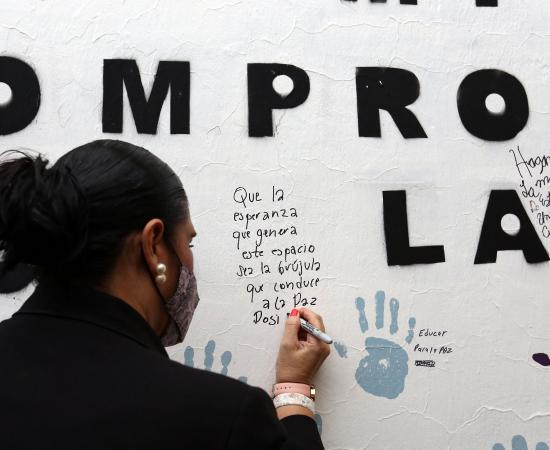 OMPRO
LA
Que la
esperanza
que genera
este espacio
sea la brújula
que conduce
a la Paz
Dosi
Educar
para la Paz